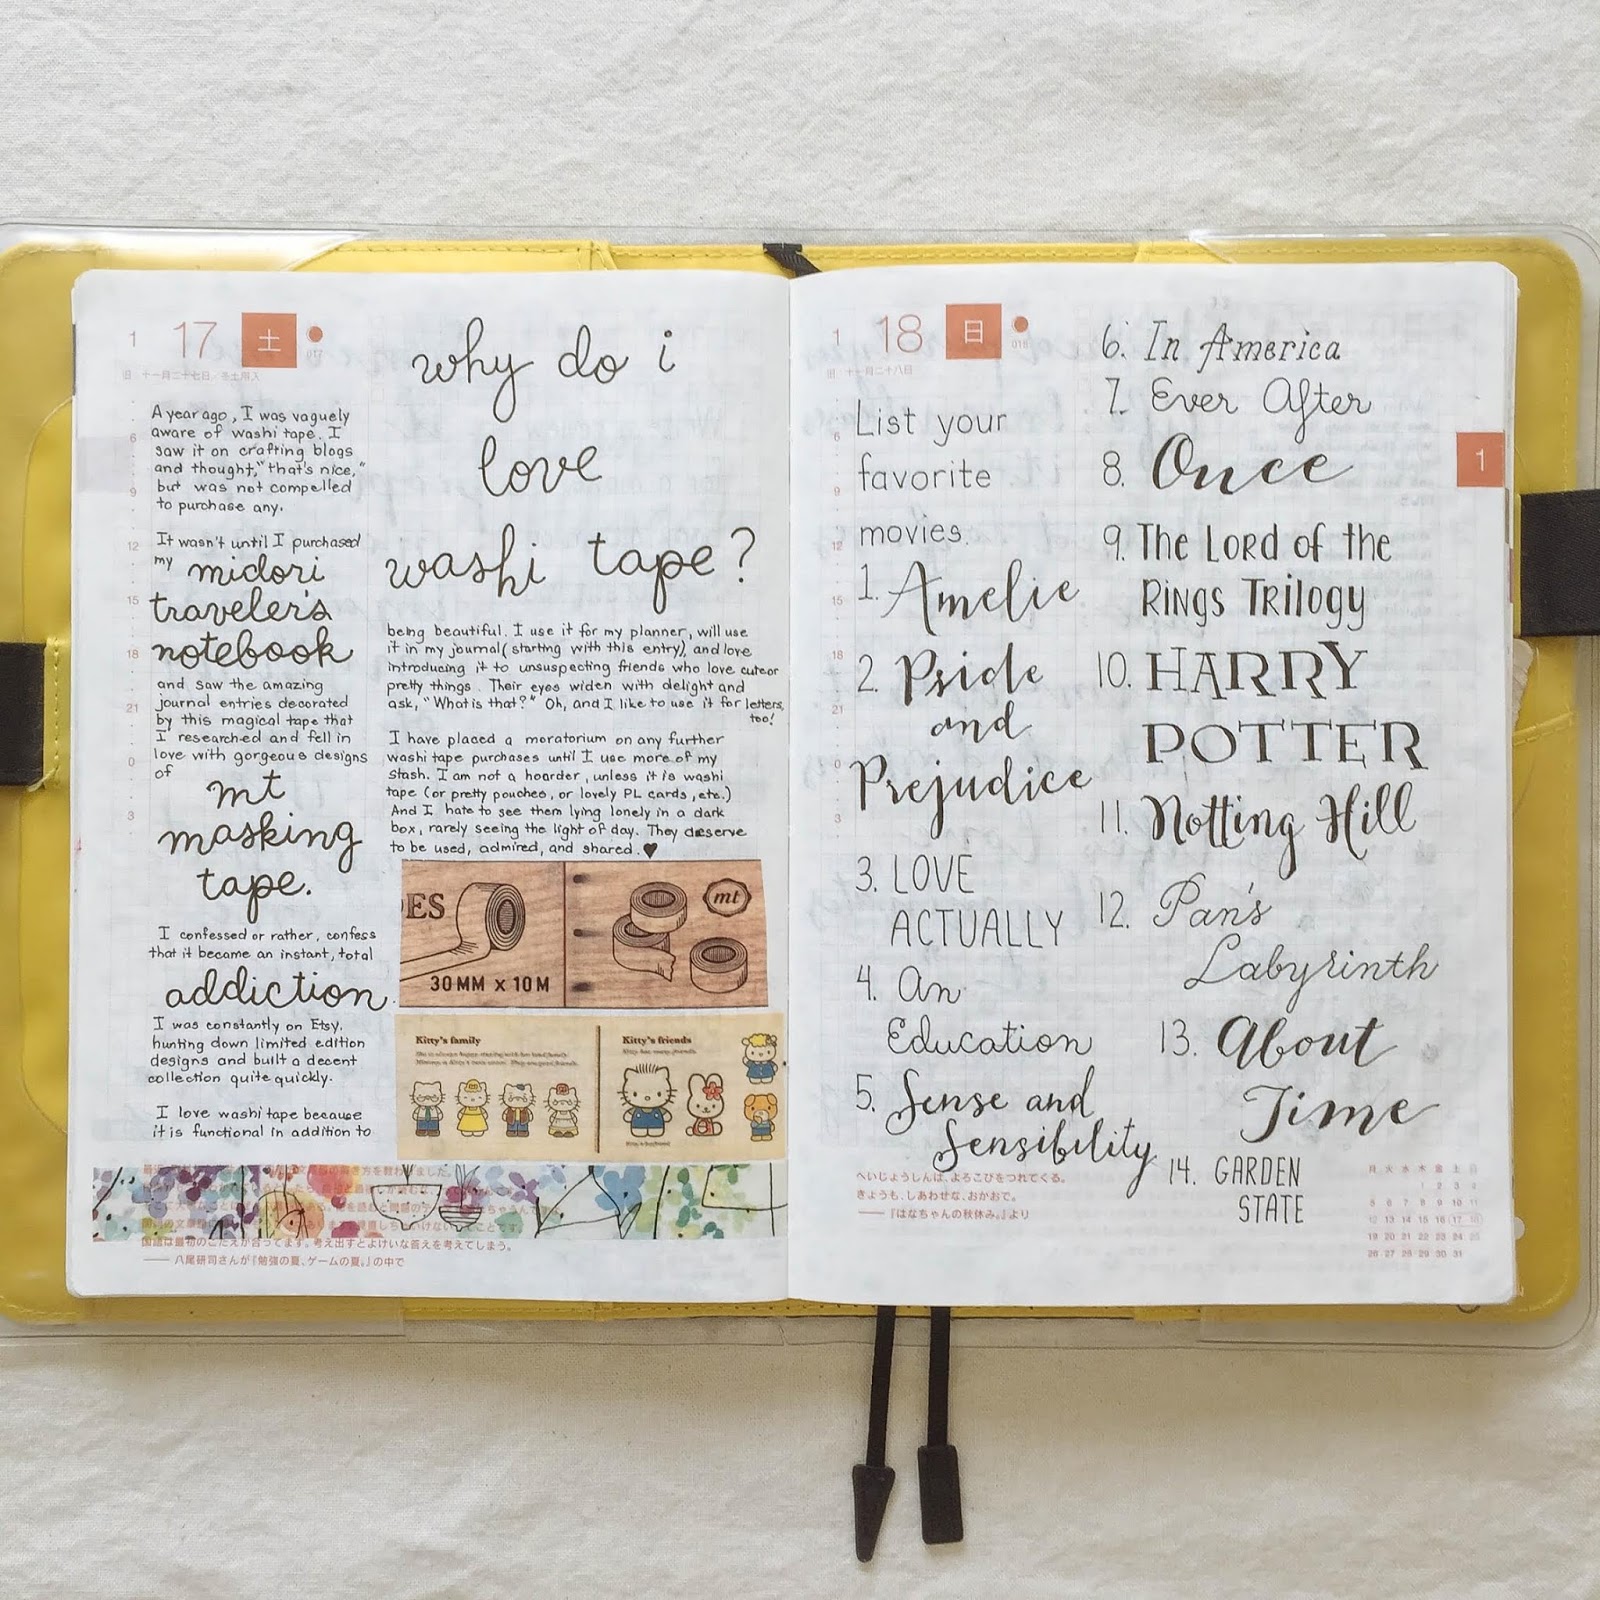 1 17 土
旧 十一月二十七日/冬土用入
why do i
love
washi tape?
A year ago, I was vaguely
aware of washi tape. I
saw it on crafting blogs
and thought, "that's nice,"
but was not compelled
to purchase any.
It wasn't until I purchased
my midori
traveler's
notebook
and saw the amazing
journal entries decorated
by this magical tape that
I researched and fell in
love with gorgeous designs
of
mt
masking
tape.
I confessed or rather, confess
that it became an instant, total
addiction.
I was constantly on Etsy.
hunting down limited edition
designs and built a decent
collection quite quickly.
I love washi tape because
it is functional in addition to
being beautiful. I use it for my planner, will use
it in my journal (starting with this entry), and love
introducing it to unsuspecting friends who love cute or
pretty things. Their eyes widen with delight and
ask, "What is that?" Oh, and I like to use it for letters,
too!
I have placed a moratorium on any further
washi tape purchases until I use more of my
stash. I am not a hoarder, unless it is washi
tape (or pretty pouches, or lovely PL cards, etc.)
And I hate to see them lying lonely in a dark
box, rarely seeing the light of day. They deserve
to be used, admired, and shared. ♥
DES
mt
30MM x 10M
Kitty's family
Kitty's friends
Kitty has many friends.
国語は最初のこたえが合ってます。考え出すとよけいな答えを考えてしまう。
—— 八尾研司さんが『勉強の夏、ゲームの夏。』の中で
6
9
12
15
18
21
0
3
1 18 日
018
旧 十一月二十八日
List your
favorite
movies.
1. Amelie
2. Pride
and
Prejudice
3. LOVE
ACTUALLY
4. An
Education
5. Sense and
Sensibility
6. In America
7. Ever After
8. Once
9. The Lord of the
Rings Trilogy
10. HARRY
POTTER
11. Notting Hill
12. Pan's
Labyrinth
13. About
Time
14. GARDEN
STATE
1
6
9
12
15
18
21
0
3
へいじょうしんは、よろこびをつれてくる。
きょうも、しあわせな、おかおで。
——『はなちゃんの秋休み。』より
月 火 水 木 金 土 日
1 2 3 4
5 6 7 8 9 10 11
12 13 14 15 16 17 18
19 20 21 22 23 24 25
26 27 28 29 30 31